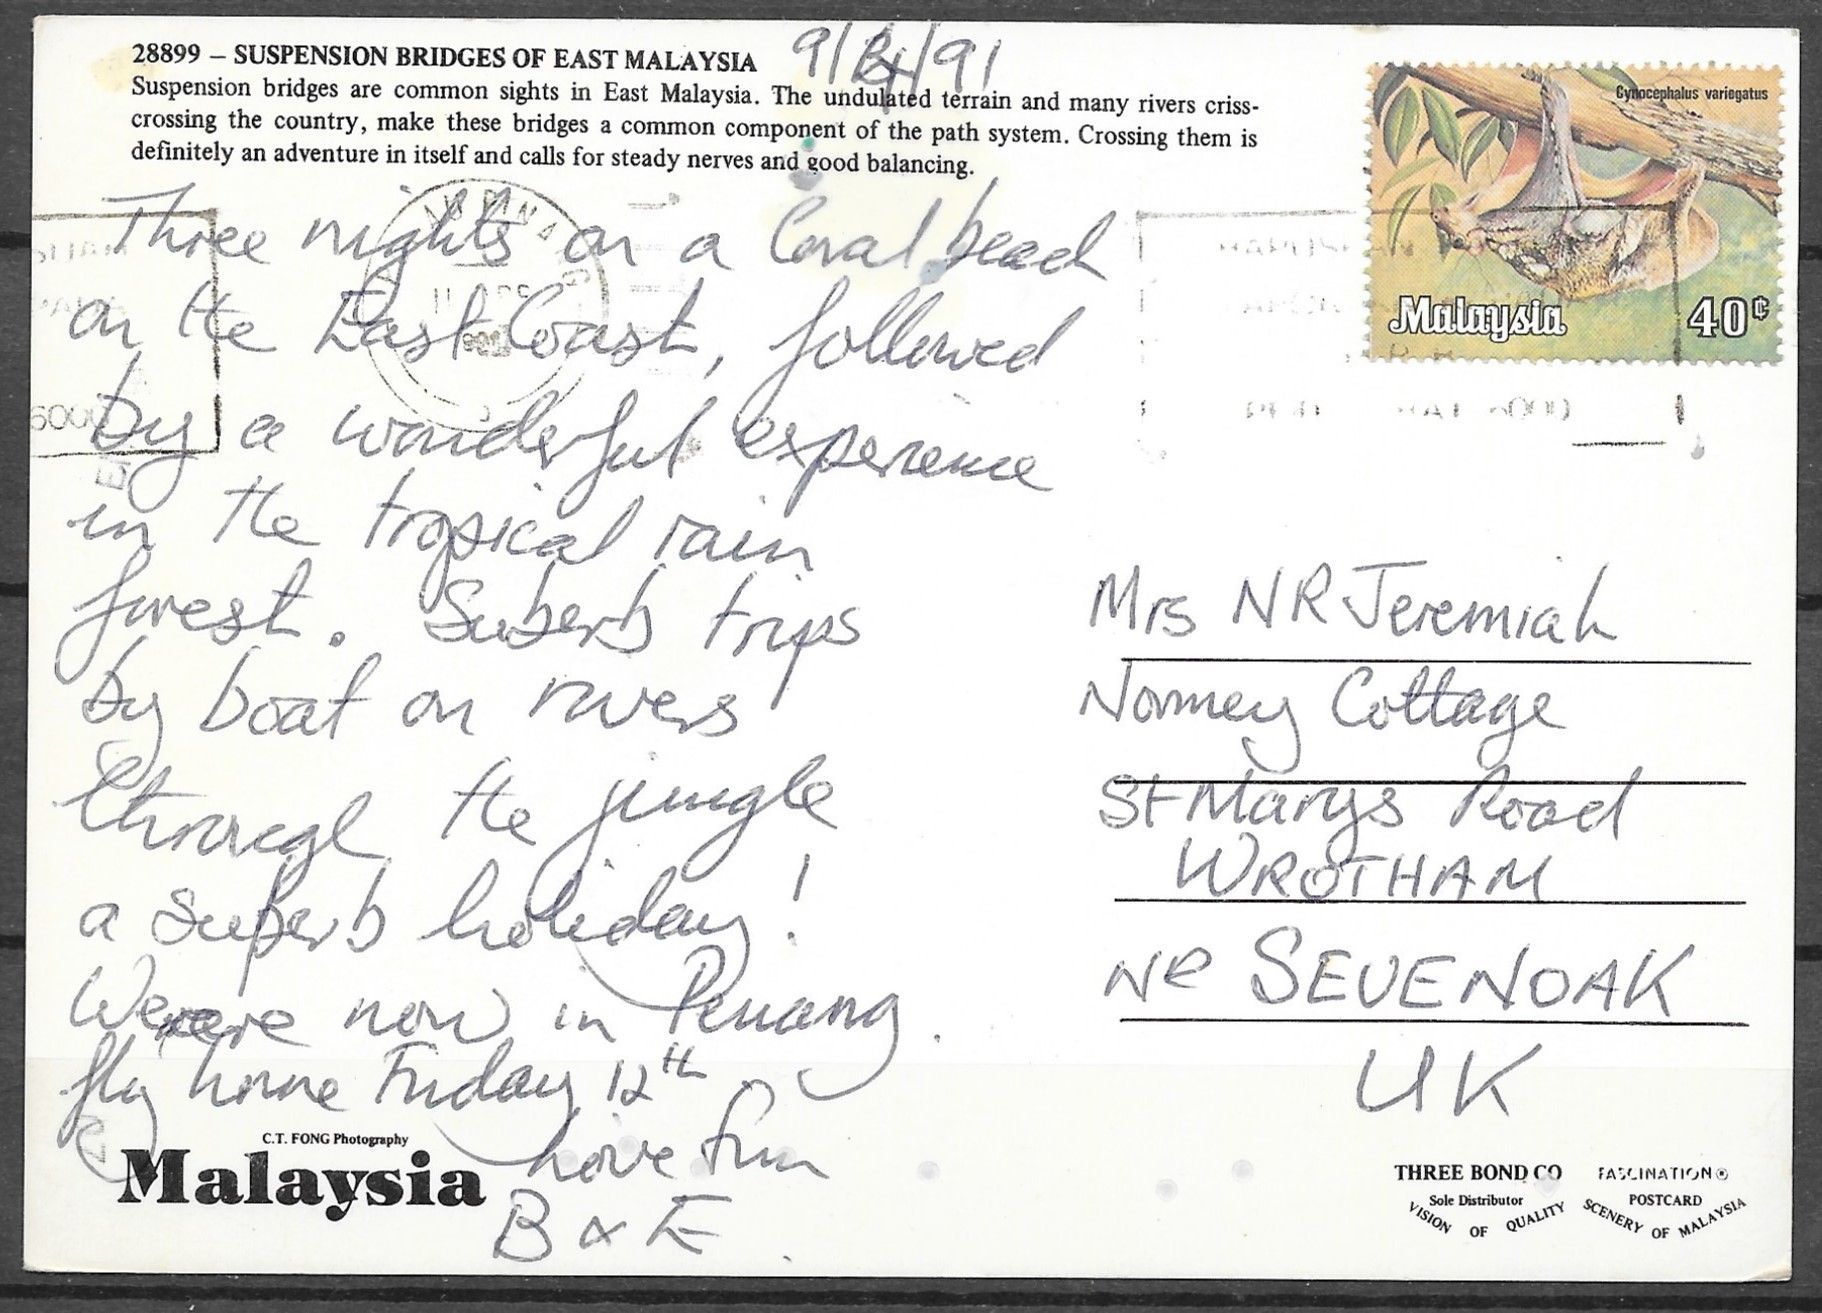 28899 – SUSPENSION BRIDGES OF EAST MALAYSIA
9/4/91
Suspension bridges are common sights in East Malaysia. The undulated terrain and many rivers criss-
crossing the country, make these bridges a common component of the path system. Crossing them is
definitely an adventure in itself and calls for steady nerves and good balancing.
Cynocephalus variegatus
Malaysia 40¢
Three nights on a Coral beach
on the East Coast, followed
by a wonderful experience
in the tropical rain
forest. Suberb trips
by boat on rivers
through the jungle
a superb holiday!
We're now in Penang.
fly home Friday 12th
love from
B & E
Mrs NR Jeremiah
Cottage
St Marys Road
WROTHAM
Nr SEVENOAK
UK
C.T. FONG Photography
Malaysia
THREE BOND CO
Sole Distributor
VISION OF QUALITY
FASCINATION
POSTCARD
SCENERY OF MALAYSIA